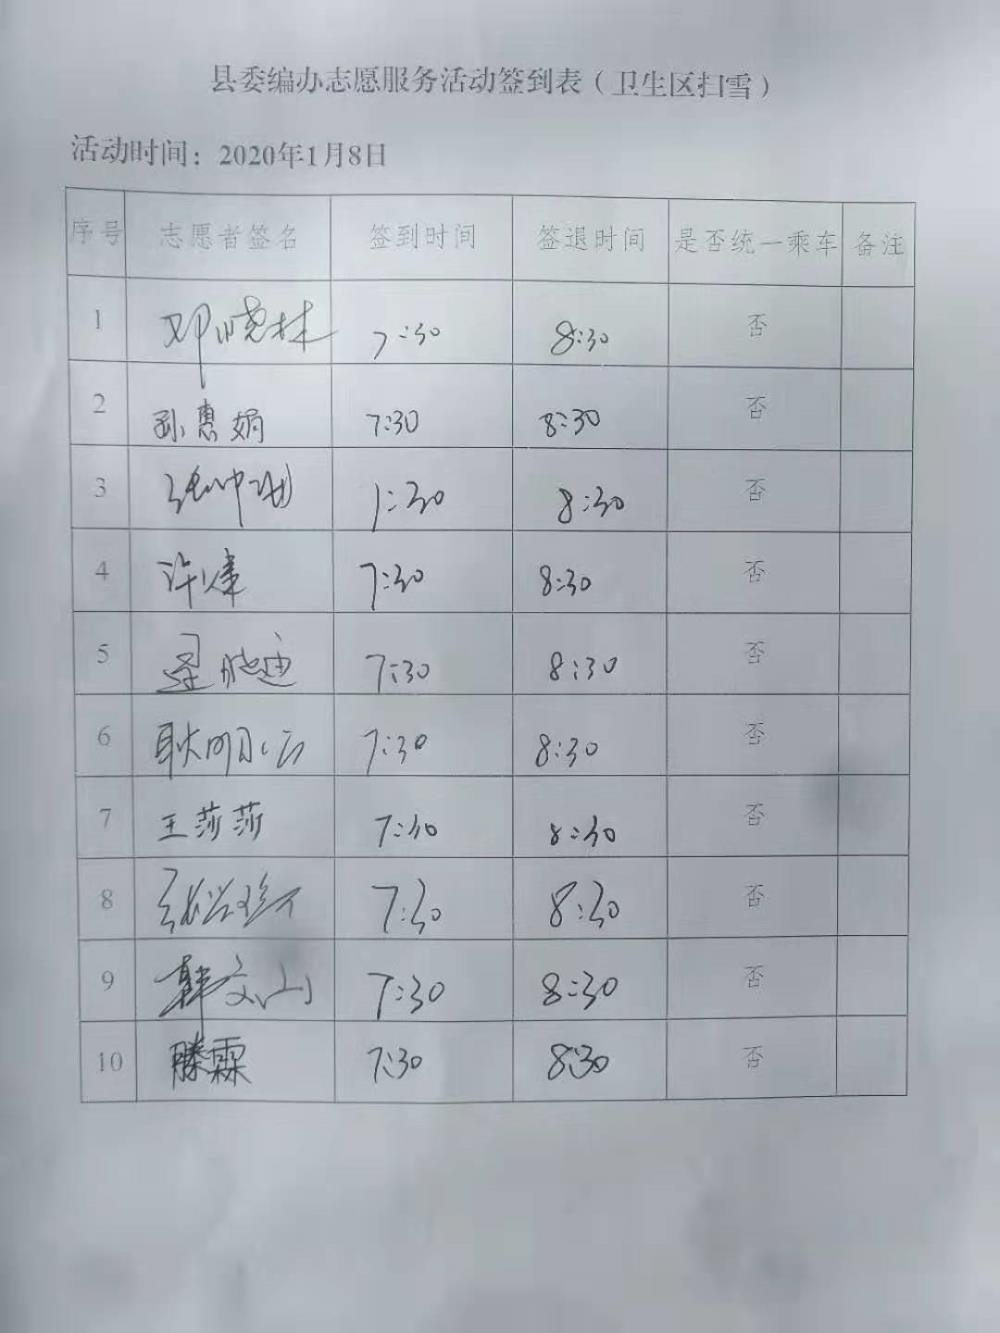 县委编办志愿服务活动签到表（卫生区扫雪）
活动时间：2020年1月8日
序号 志愿者签名 签到时间 签退时间 是否统一乘车 备注
1 邓晓林 7:30 8:30 否
2 孙惠娟 7:30 8:30 否
3 7:30 8:30 否
4 许 7:30 8:30 否
5 晓迪 7:30 8:30 否
6 耿明云 7:30 8:30 否
7 王莎莎 7:30 8:30 否
8 张 7:30 8:30 否
9 韩文山 7:30 8:30 否
10 滕霖 7:30 8:30 否